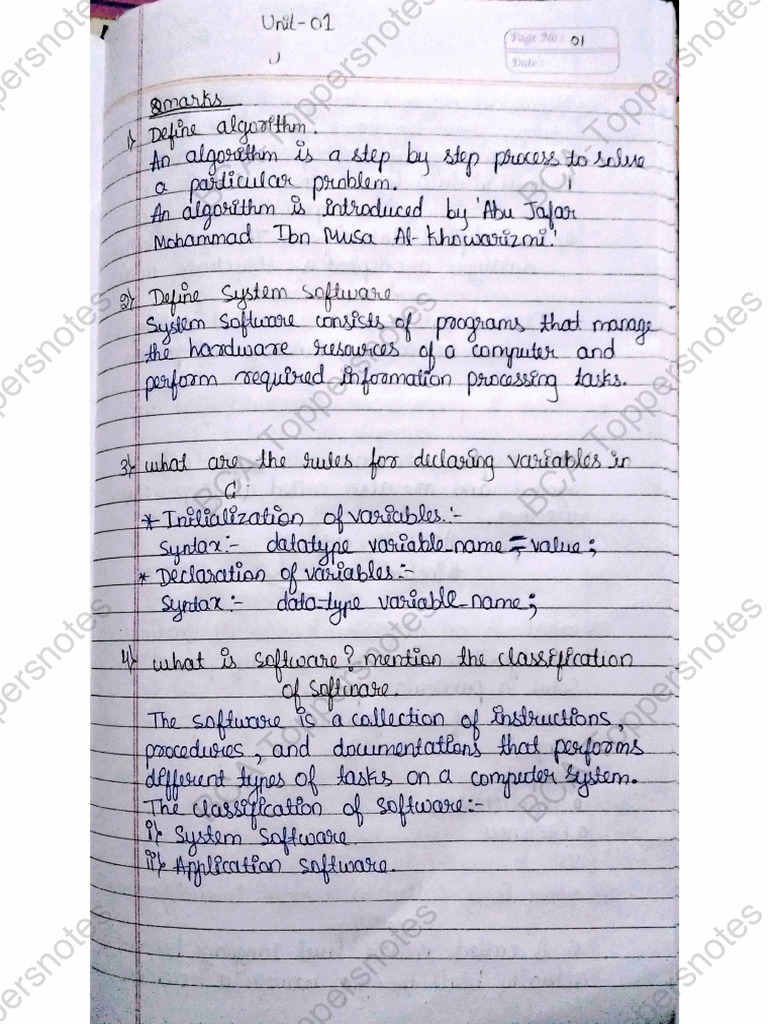 Unit-01
Page No: 01
Date:
2marks
1) Define algorithm.
An algorithm is a step by step process to solve
a particular problem.
An algorithm is introduced by 'Abu Jafar
Mohammad Ibn Musa Al-Khowarizmi.'
2) Define System Software.
System Software consists of programs that manage
the hardware resources of a computer and
perform required information processing tasks.
3) what are the rules for declaring variables in
C.
* Initialization of variables:-
Syntax:- datatype variable_name = value;
* Declaration of variables:-
Syntax:- data-type variable_name;
4) what is software? mention the classification
of software.
The software is a collection of instructions,
procedures, and documentations that performs
different types of tasks on a computer system.
The classification of software:-
i) System Software
ii) Application software.
BCA Toppersnotes